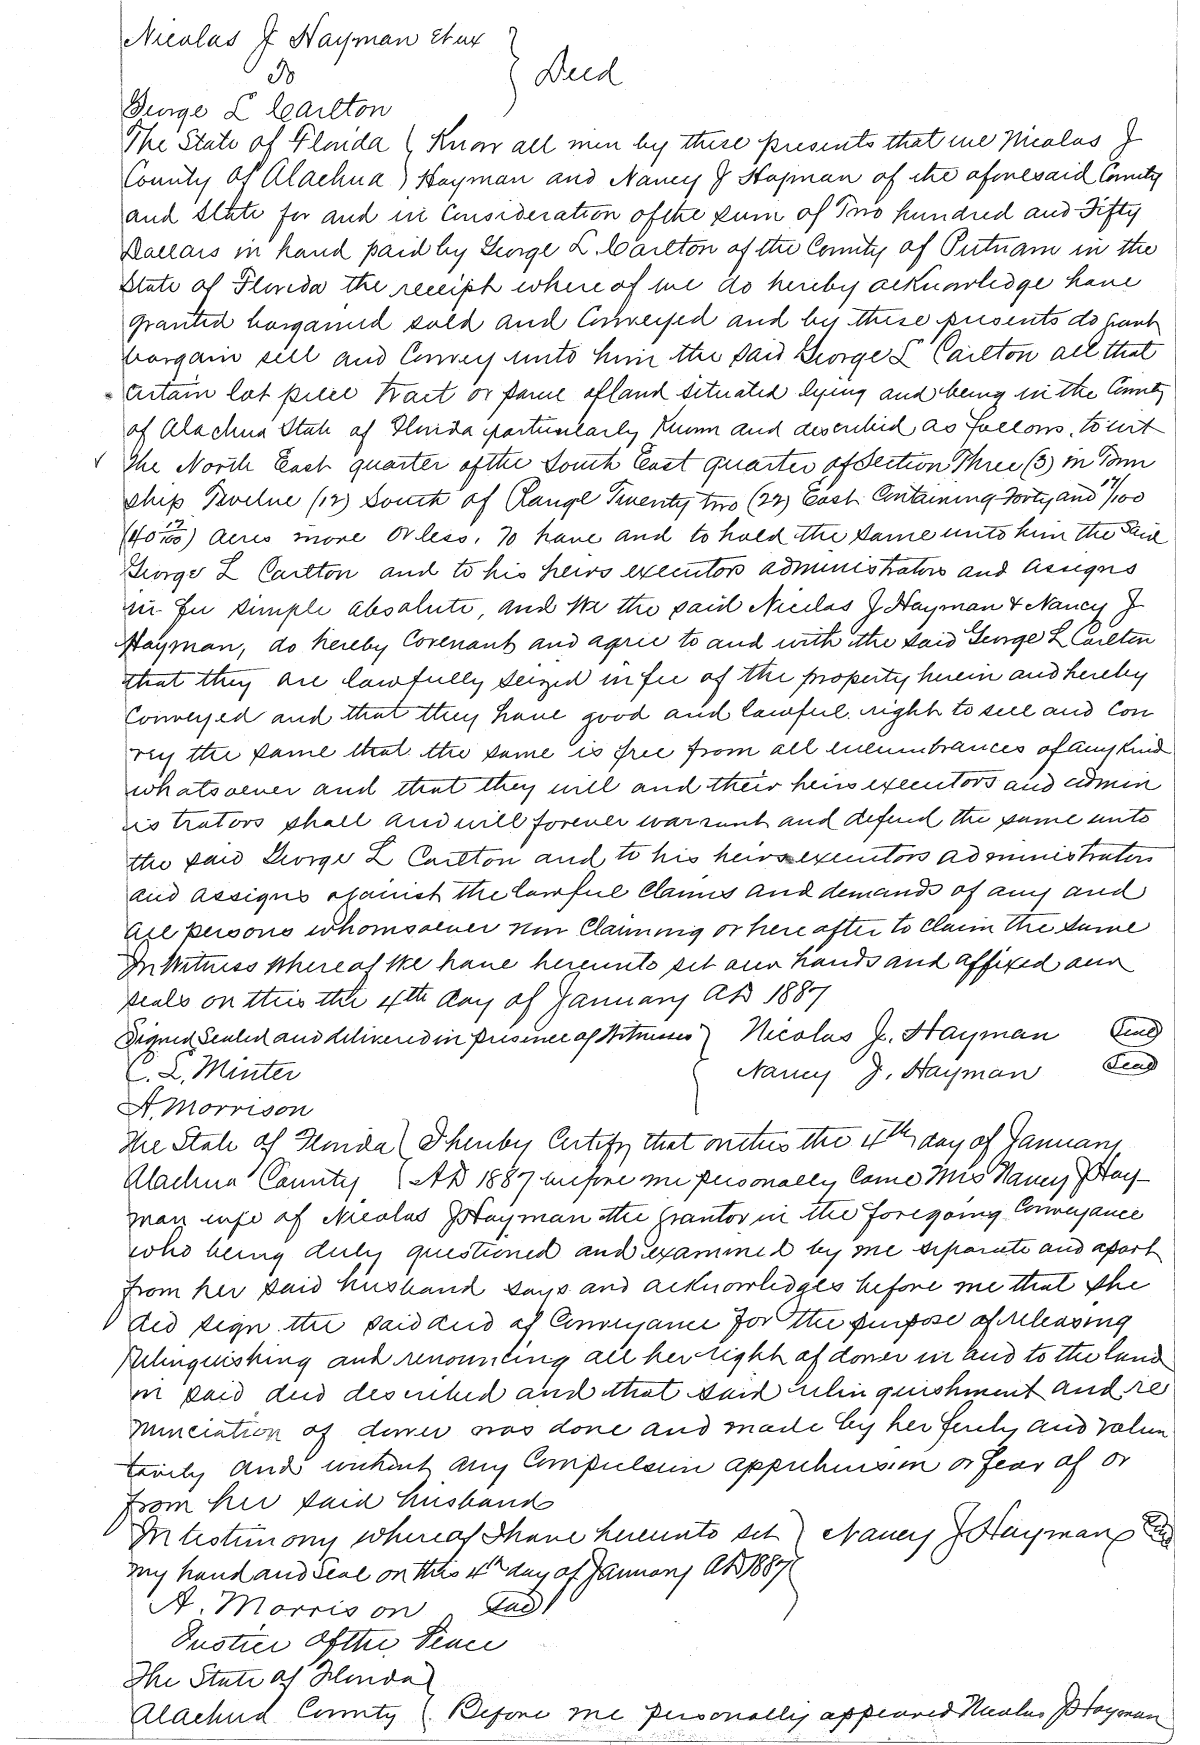 Nicolas J Hayman et ux
To } Deed
George L Carlton
The State of Florida ( Know all men by these presents that we Nicolas J
County of Alachua ) Hayman and Nancy J Hayman of the aforesaid County
and State for and in Consideration of the sum of Two hundred and Fifty
Dollars in hand paid by George L. Carlton of the County of Putnam in the
State of Florida the receipt where of we do hereby acknowledge have
granted bargained sold and Conveyed and by these presents do grant
bargain sell and Convey unto him the said George L Carlton all that
certain lot piece tract or parcel of land situated lying and being in the County
of Alachua State of Florida particularly Known and described as follows, to wit
The North East quarter of the South East quarter of Section Three (3) in Town
ship Twelve (12) South of Range Twenty two (22) East Containing Forty and 17/100
(40 17/100) acres more or less. To have and to hold the same unto him the said
George L Carlton and to his heirs executors administrators and assigns
in fee simple absolute, and We the said Nicolas J Hayman & Nancy J
Hayman, do hereby Covenant and agree to and with the said George L Carlton
that they are lawfully seized in fee of the property herein and hereby
Conveyed and that they have good and lawful right to sell and Con
vey the same that the same is free from all encumbrances of any Kind
whatsoever and that they will and their heirs executors and admin
istrators shall and will forever warrant and defend the same unto
the said George L Carlton and to his heirs executors administrators
and assigns against the lawful Claims and demands of any and
all persons whomsoever now Claiming or here after to Claim the same
In Witness Whereof We have hereunto set our hands and affixed our
seals on this the 4th day of January AD 1887
Signed Sealed and delivered in presence of Witnesses ) Nicolas J. Hayman (Seal)
C. L. Minter ( Nancy J. Hayman (Seal)
A. Morrison
The State of Florida ( I hereby Certify that on this the 4th day of January
Alachua County ( AD 1887 before me personally Came Mrs Nancy J Hay-
man wife of Nicolas J Hayman the grantor in the foregoing Conveyance
who being duly questioned and examined by me separate and apart
from her said husband says and acknowledges before me that she
did sign the said deed of Conveyance for the purpose of releasing
relinquishing and renouncing all her right of dower in and to the land
in said deed described and that said relinquishment and re
nunciation of dower was done and made by her freely and volun
tarily and without any Compulsion apprehension or fear of or
from her said husband
In testimony whereof I have hereunto set ) Nancy J Hayman (Seal)
my hand and Seal on this 4th day of January AD 1887 (
A. Morrison (Seal)
Justice of the Peace
The State of Florida )
Alachua County ( Before me personally appeared Nicolas J Hayman